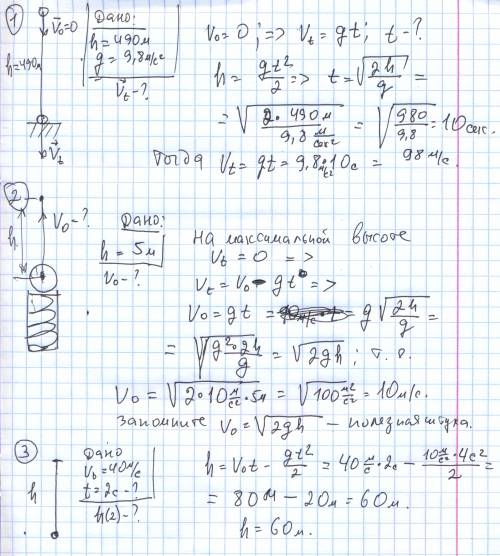 1
V₀=0
h=490м
Vₜ
Дано:
h = 490м
g = 9,8м/с²
Vₜ - ?
V₀ = 0 ; => Vₜ = gt; t - ?
h = gt²/2 => t = √(2h/g) =
= √(2·490м / 9,8 м/сек²) = √(980/9,8) = 10сек.
Тогда Vₜ = gt = 9,8 м/с²·10с = 98м/с.
2
h
V₀ - ?
Дано:
h = 5м
V₀ - ?
На максимальной высоте
Vₜ = 0 =>
Vₜ = V₀ - gt =>
V₀ = gt = g√(2h/g) =
= √(g²·2h/g) = √(2gh) ; т.о.
V₀ = √(2·10 м/с²·5м) = √(100 м²/с²) = 10м/с.
запомните V₀ = √(2gh) – полезная штука.
3
h
Дано
V₀ = 40м/с
t = 2с - ?
h(2) - ?
h = V₀t - gt²/2 = 40 м/с·2с - (10 м/с²·4с²)/2 =
= 80м – 20м = 60м.
h = 60м.